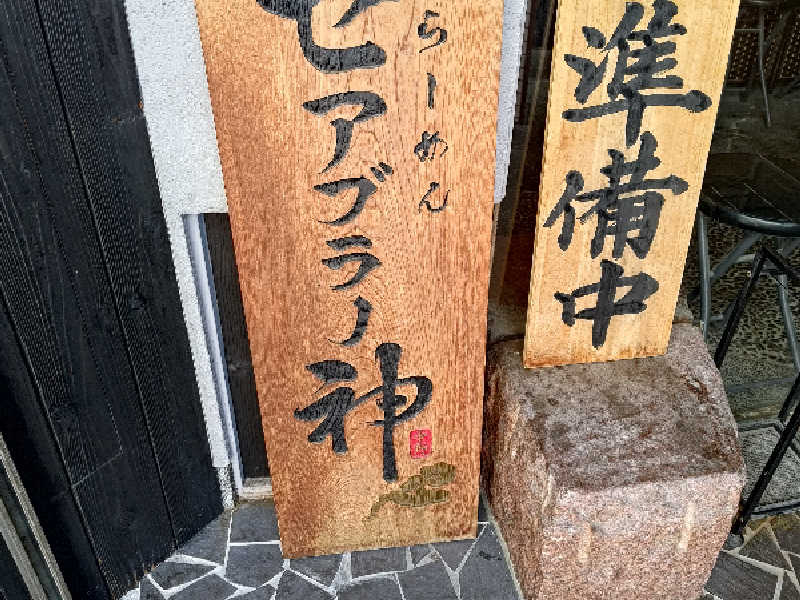 準備中
らーめん
セアブラノ神